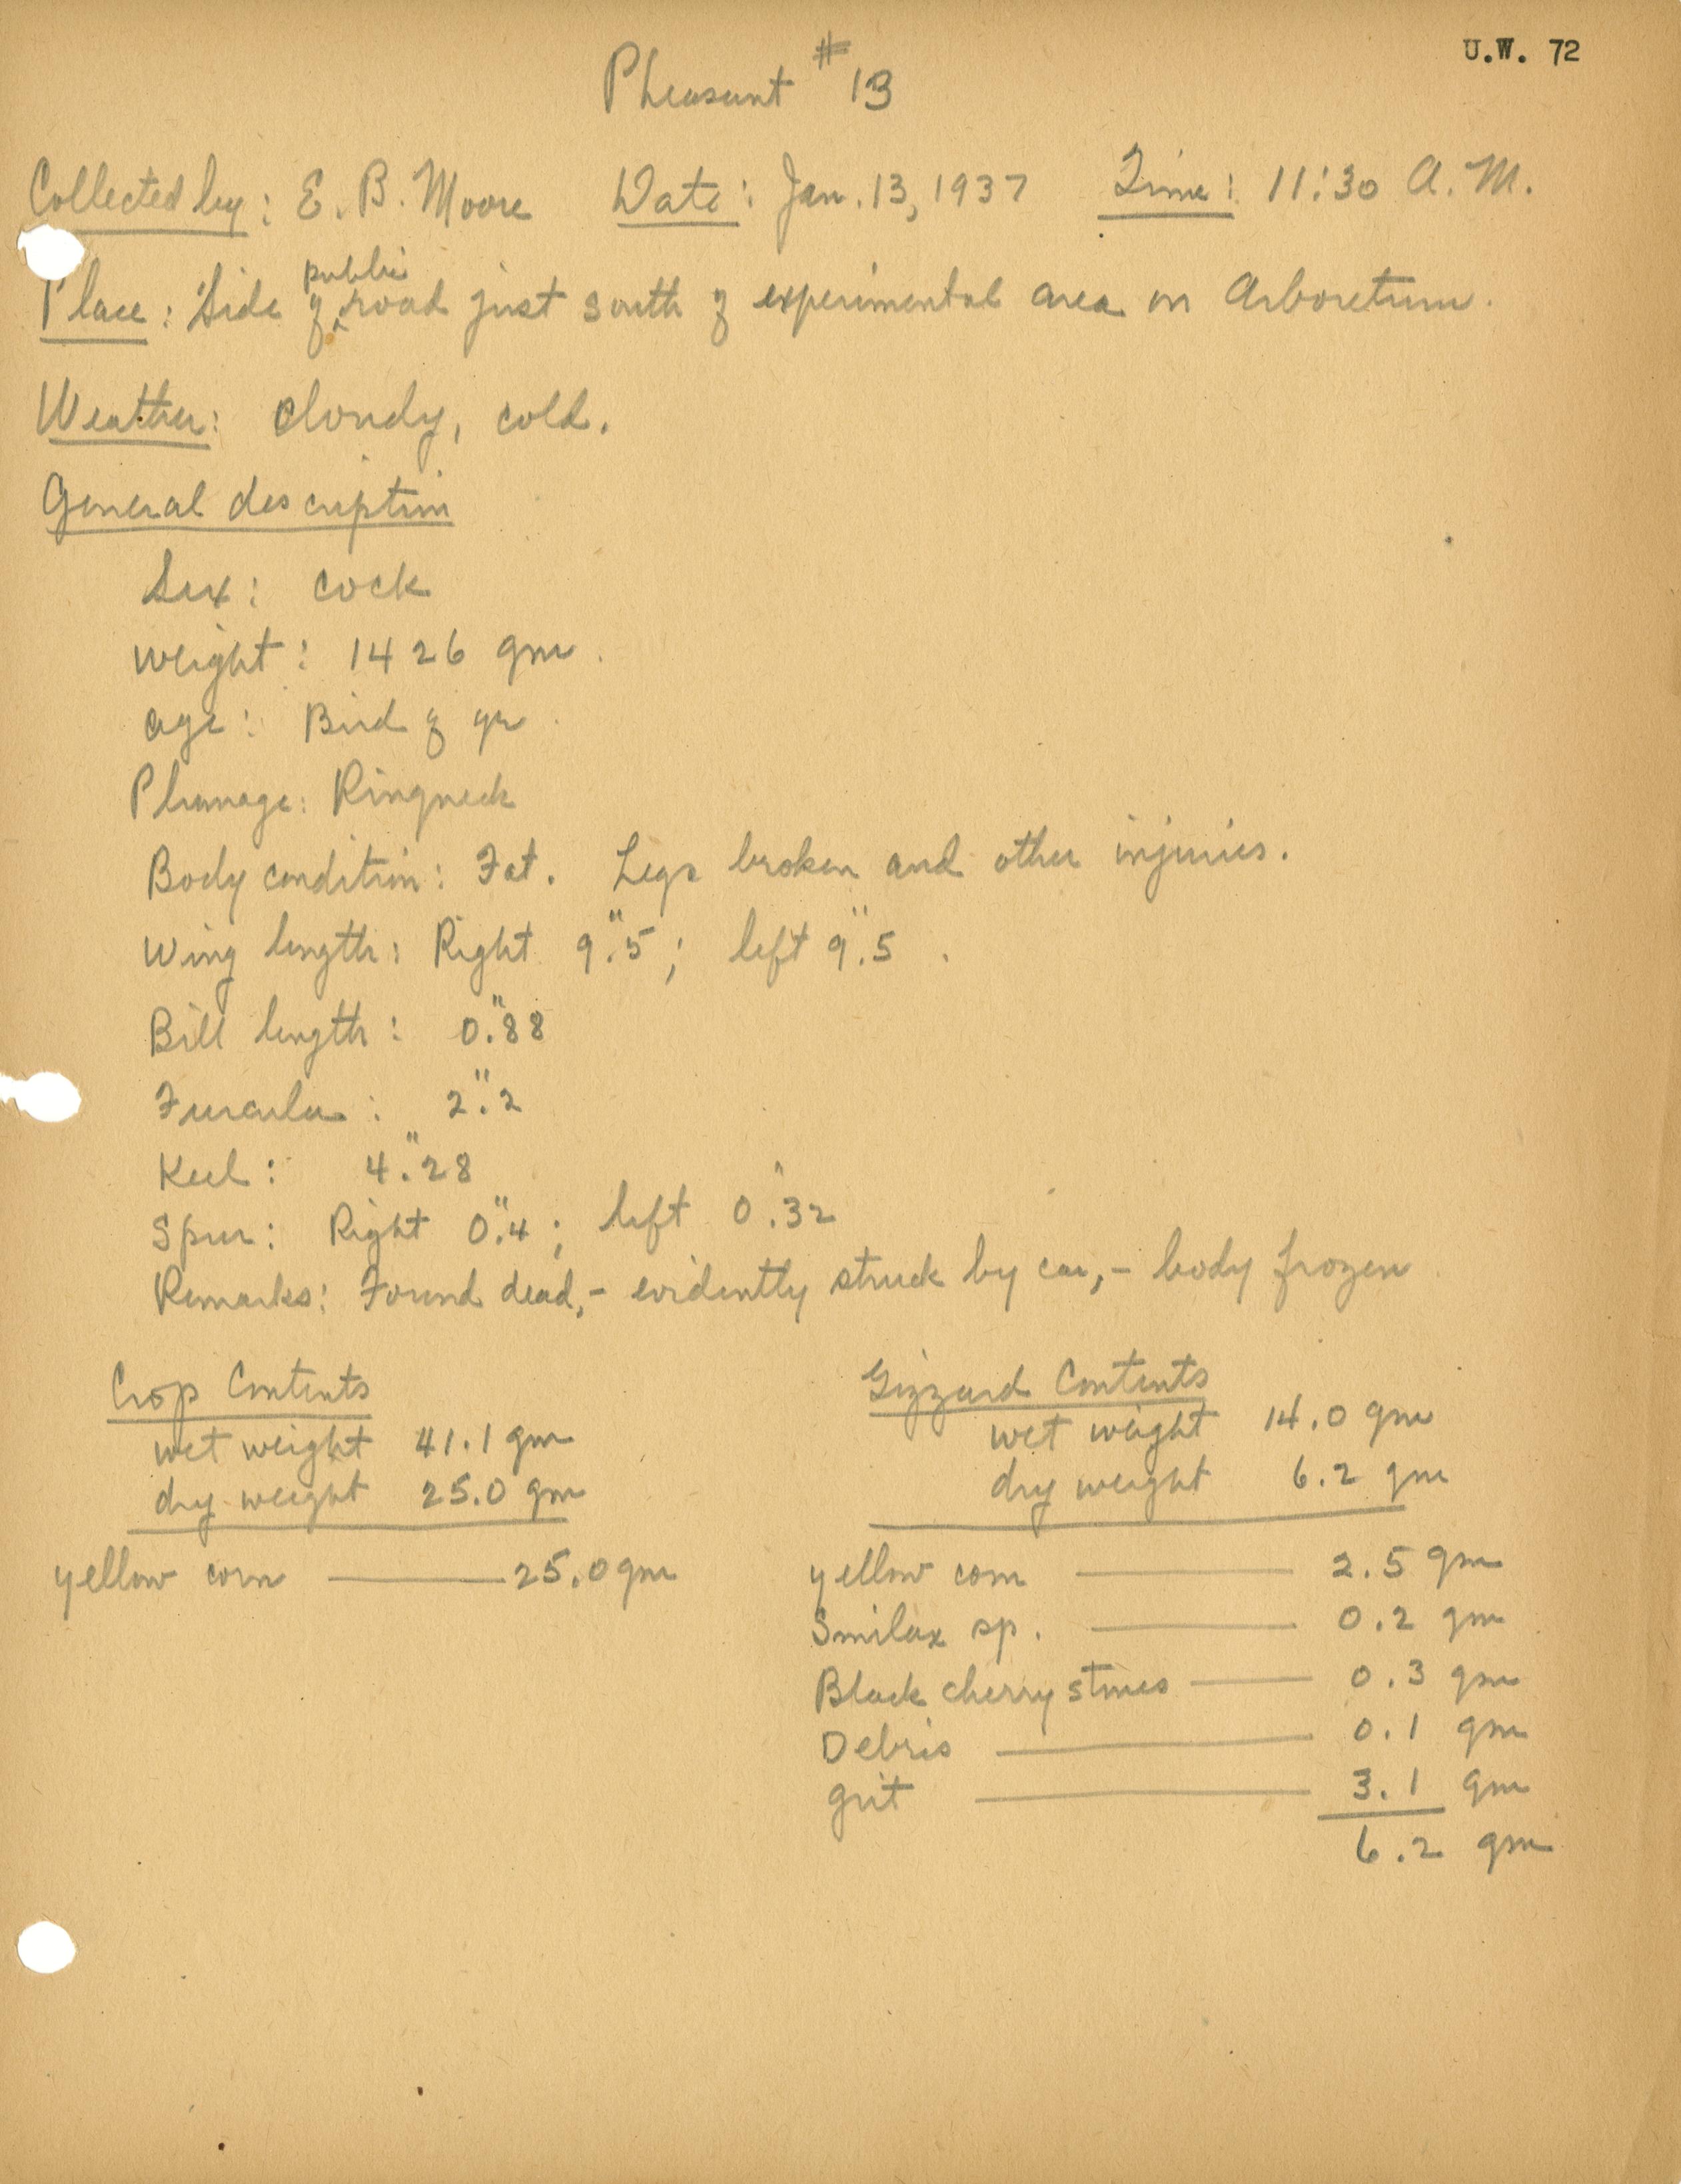 U.W. 72
Pheasant #13
Collected by: E. B. Moore Date: Jan. 13, 1937 Time: 11:30 A.M.
Place: Side of public road just south of experimental area on Arboretum.
Weather: cloudy, cold.
General description
Sex: cock
weight: 1426 gm.
age: Bird of yr.
Plumage: Ringneck
Body condition: Fat. Legs broken and other injuries.
Wing length: Right 9".5; left 9".5.
Bill length: 0".88
Furcula: 2".2
Keel: 4".28
Spur: Right 0".4; left 0".32
Remarks: Found dead,- evidently struck by car,- body frozen
Crop Contents
wet weight 41.1 gm
dry weight 25.0 gm
yellow corn — 25.0 gm
Gizzard Contents
wet weight 14.0 gm
dry weight 6.2 gm
yellow corn — 2.5 gm
Smilax sp. — 0.2 gm
Black cherry stones — 0.3 gm
Debris — 0.1 gm
grit — 3.1 gm
6.2 gm